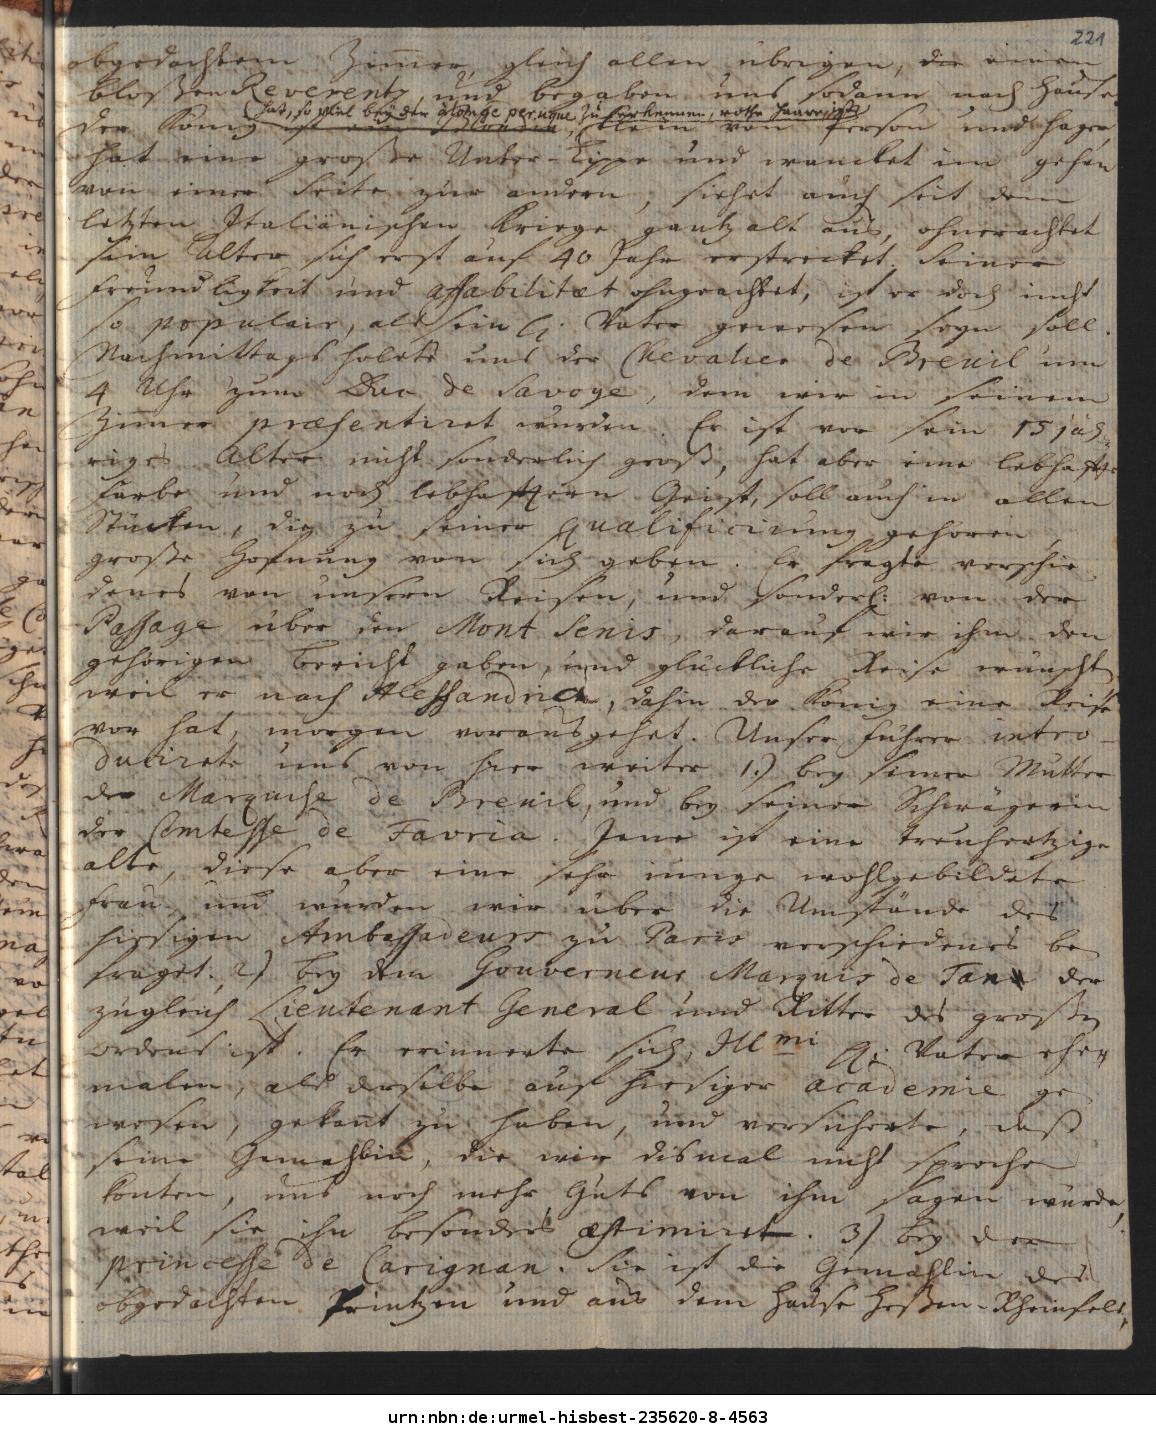 221
obgedachtem Zimmer, gleich allen übrigen, die einen
bloßen Reverentz, und begaben uns sodann nach Hause.
hat, so viel bey der perruque zu erkennen, rothe Haare ist
Der König ist klein von Person und hager,
hat eine große Unter-Lippe und wancket im gehen
von einer Seite zur andern, siehet auch seit dem
letzten Italiänischen Kriege gantz alt aus, ohnerachtet
sein Alter sich erst auf 40 Jahr erstrecket. Seiner
Freundligkeit und affabilitæt ohngeachtet, ist er doch nicht
so populair, als sein H. Vater gewesen seyn soll.
Nachmittags holete uns der Chevalier de Breuil um
4 Uhr zum Duc de Savoye, dem wir in seinem
Zimmer præsentiret wurden. Er ist vor sein 15 jäh-
riges Alter nicht sonderlich groß, hat aber eine lebhaffte
Farbe und noch lebhafftern Geist, soll auch in allen
Stücken, die zu seiner qualificirung gehören,
große Hofnung von sich geben. Er fragte verschie-
denes von unsern Reisen, und sonderl. von der
Passage über den Mont Senis, darauf wir ihm den
gehörigen bericht gaben, und glückliche Reise wünscht.
weil er nach Alessandria, dahin der König eine Reise
vor hat, morgen vorausgehet. Unser Führer intro-
ducirete uns von hier weiter 1.) bey seiner Mutter
der Marquise de Breuil, und bey seiner Schwägerin
der Comtesse de Favria. Jene ist eine treuhertzige
alte, diese aber eine sehr iunge wohlgebildete
Frau, und wurden wir über die Umstände des
hiesigen Ambassadeurs zu Paris verschiedenes be-
fraget. 2) bey dem Gouverneur, Marquis de Tana der
zugleich Lieutenant General und Ritter des großen
Ordens ist. Er erinnerte sich, Illmi H. Vater ehe-
malen, als derselbe auf hiesiger academie ge-
wesen, gekant zu haben, und versicherte, daß
seine Gemahlin, die wir dismal nicht sprechen
konten, uns noch mehr Guts von ihm sagen würde,
weil sie ihn besonders æstimiret. 3) bey der
princesse de Carignan. Sie ist die Gemahlin des
obgedachten Printzen und aus dem Hause Heßen-Rheinfels,
urn:nbn:de:urmel-hisbest-235620-8-4563